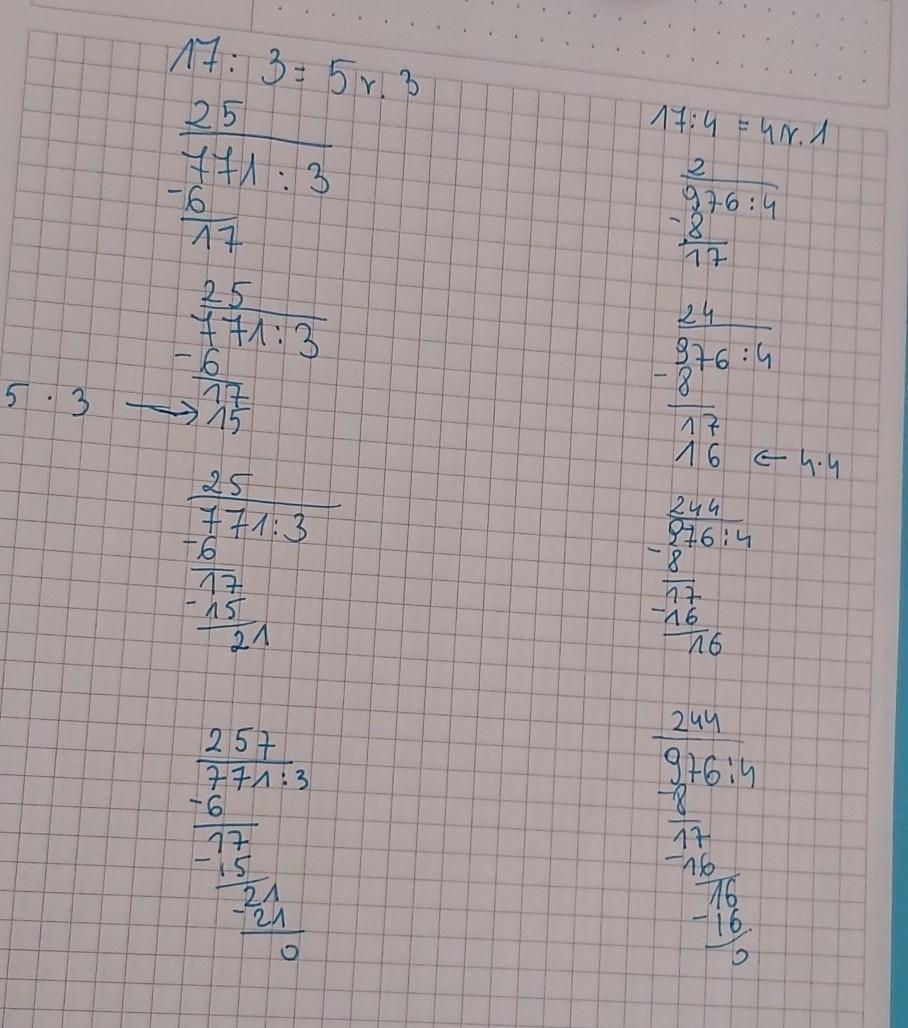 17 : 3 = 5 r. 3
25
771 : 3
-6
17
25
771 : 3
-6
17
5 · 3 → 15
25
771 : 3
-6
17
-15
21
257
771 : 3
-6
17
-15
21
-21
0
17 : 4 = 4 r. 1
2
976 : 4
-8
17
24
976 : 4
-8
17
16 ← 4·4
244
976 : 4
-8
17
-16
16
244
976 : 4
-8
17
-16
16
-16
0